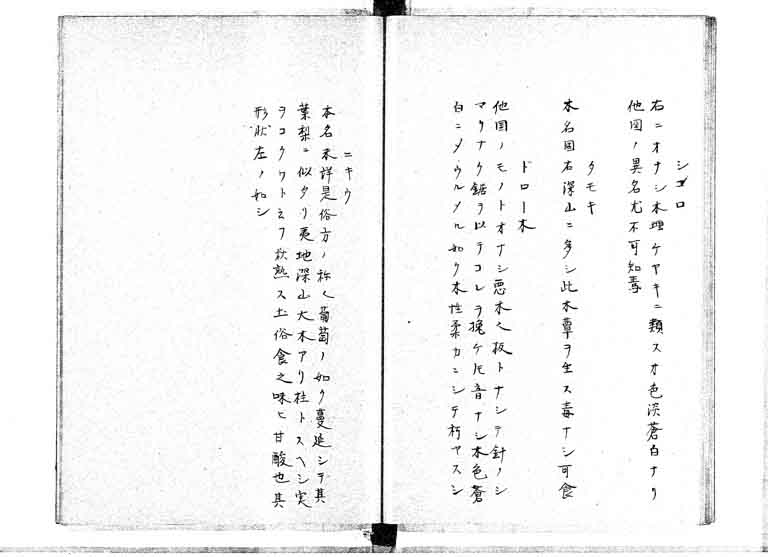 シコロ
右ニオナシ木理ケヤキニ類ス木色淡蒼白ナリ
他国ノ異名尤不可知毒
タモキ
木名同右深山ニ多シ此木蕈ヲ生ス毒ナシ可食
ドロー木
他国ノモノトオナシ悪木也板トナシテ針ノシ
マリナク鋸ヲ以テコレヲ挽ケ𪜈音ナシ木色蒼
白ニメウルメル如ク木性柔カニシテ朽ヤスシ
ニキウ
本名未詳是俗方ノ称也葡萄ノ如ク蔓延シテ其
葉梨ニ似タリ夷地深山大木アリ柱トスヘシ実
ヲコクワト云フ秋熟ス土俗食之味ヒ甘酸也其
形状左ノ如シ